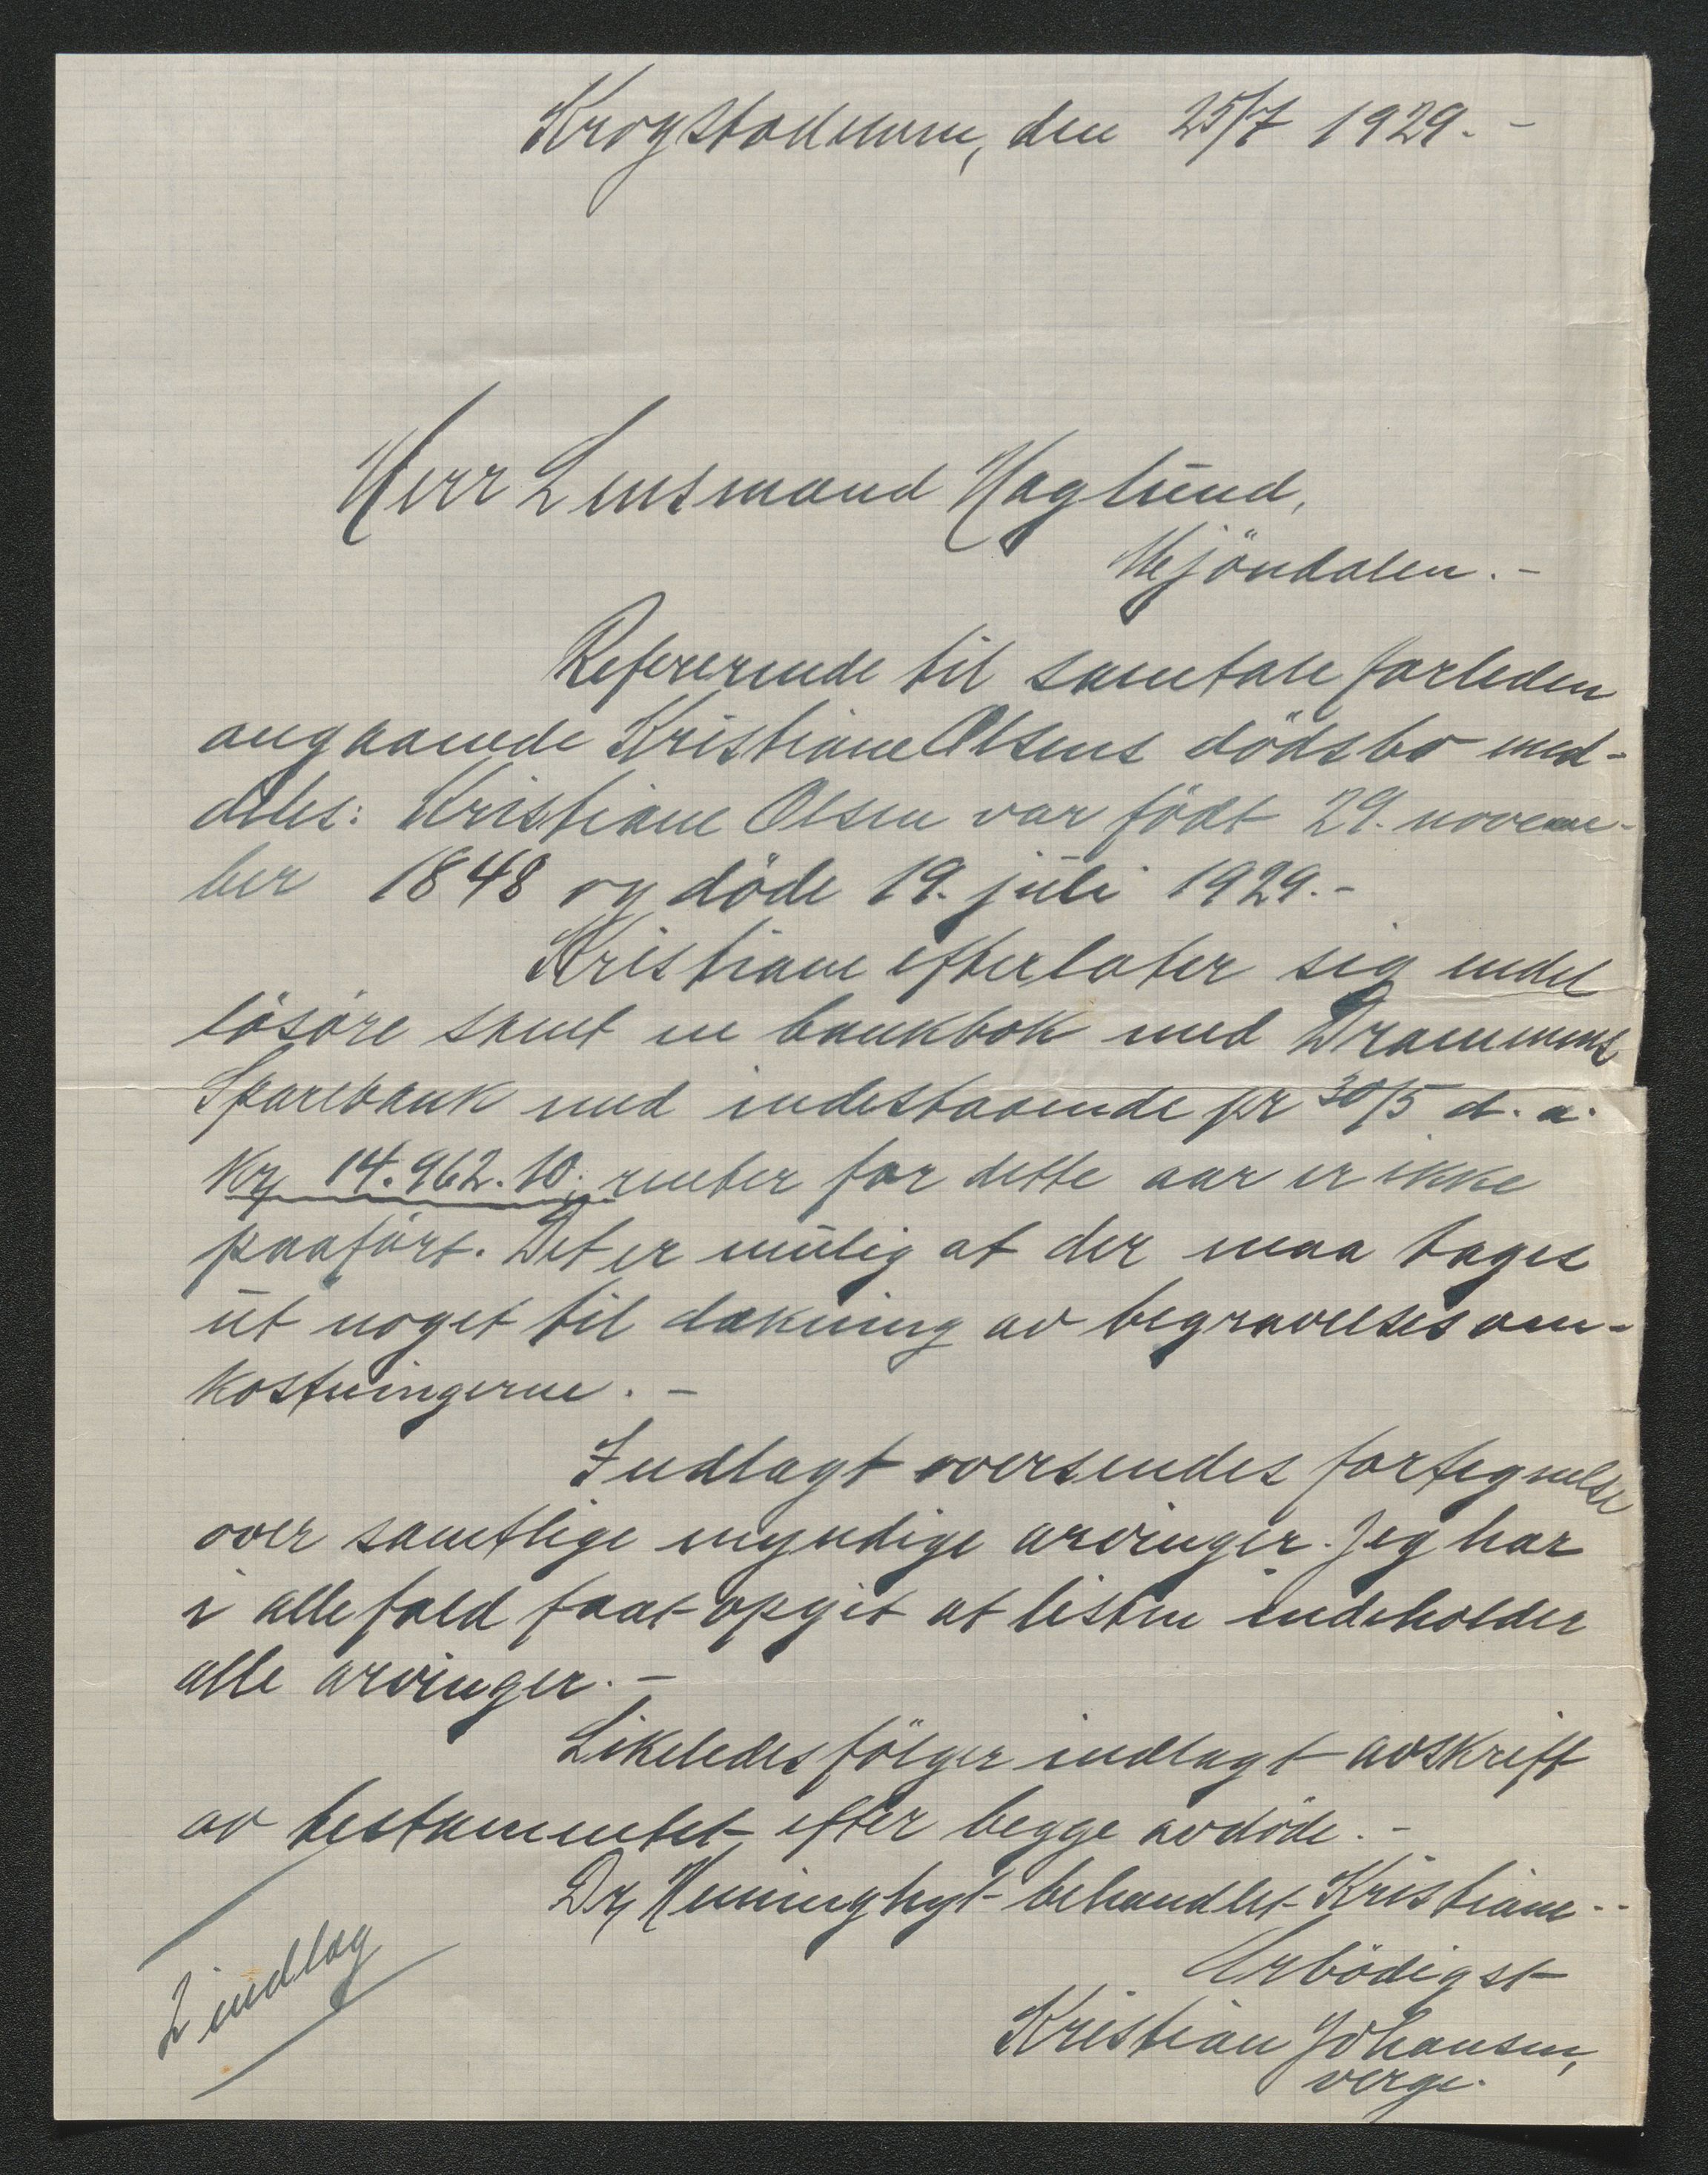 Krogstadelven, den 25/7 1929.-
Herr Lensmand Haglund,
Mjöndalen.-
Refererende til samtale forleden
angaaende Kristiane Olsens dödsbo med-
deles: Kristiane Olsen var födt 29. novem-
ber 1848 og döde 19. juli 1929.-
Kristiane efterlater sig endel
lösöre samt en bankbok med Drammens
Sparebank med indestaaende pr 30/5 d. a.
Kr 14.962.10; renter for dette aar er ikke
paafört. Det er mulig at der maa tages
ut noget til dækning av begravelsesom-
kostningerne.-
Indlagt oversendes fortegnelse
over samtlige myndige arvinger. Jeg har
i allefald faat opgit at listen indeholder
alle arvinger.-
Likeledes fölger indlagt avskrift
av testamentet efter begge avdöde.-
Dr behandlet Kristiane.-
Ærbödigst
Kristian Johansen,
verge.
2 indlag